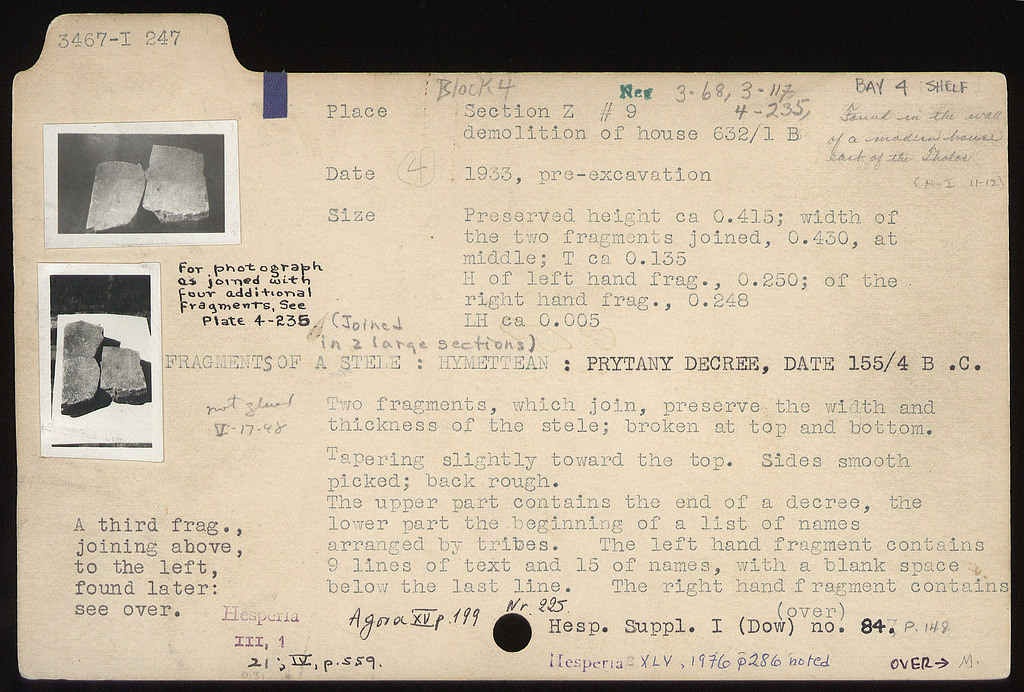 3467-I 247
Block 4
Neg 3-68, 3-117,
4-235,
BAY 4 SHELF
Found in the wall
of a modern house
east of the Tholos
(H-I 11-12)
Place Section Z # 9
demolition of house 632/1 B
Date (4) 1933, pre-excavation
Size Preserved height ca 0.415; width of
the two fragments joined, 0.430, at
middle; T ca 0.135
H of left hand frag., 0.250; of the
right hand frag., 0.248
LH ca 0.005
For photograph
as joined with
four additional
fragments, See
Plate 4-235
(Joined
in 2 large sections)
FRAGMENTS OF A STELE : HYMETTEAN : PRYTANY DECREE, DATE 155/4 B .C.
not glued
V-17-48
Two fragments, which join, preserve the width and
thickness of the stele; broken at top and bottom.
Tapering slightly toward the top. Sides smooth
picked; back rough.
The upper part contains the end of a decree, the
lower part the beginning of a list of names
arranged by tribes. The left hand fragment contains
9 lines of text and 15 of names, with a blank space
below the last line. The right hand fragment contains
(over)
A third frag.,
joining above,
to the left,
found later:
see over.
Hesperia
III, 1
21; IV, p.559.
Agora XV p.199 Nr. 225.
Hesp. Suppl. I (Dow) no. 84, P. 148
Hesperia XLV, 1976 p286 noted
OVER→ M.